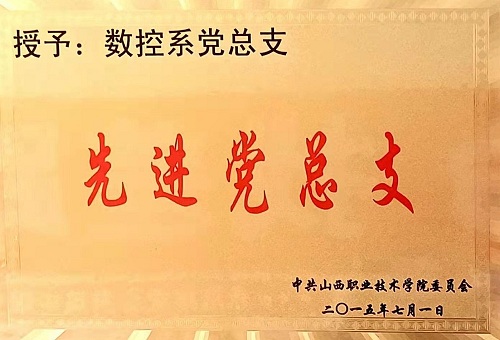 授予：数控系党总支
先进党总支
中共山西职业技术学院委员会
二〇一五年七月一日